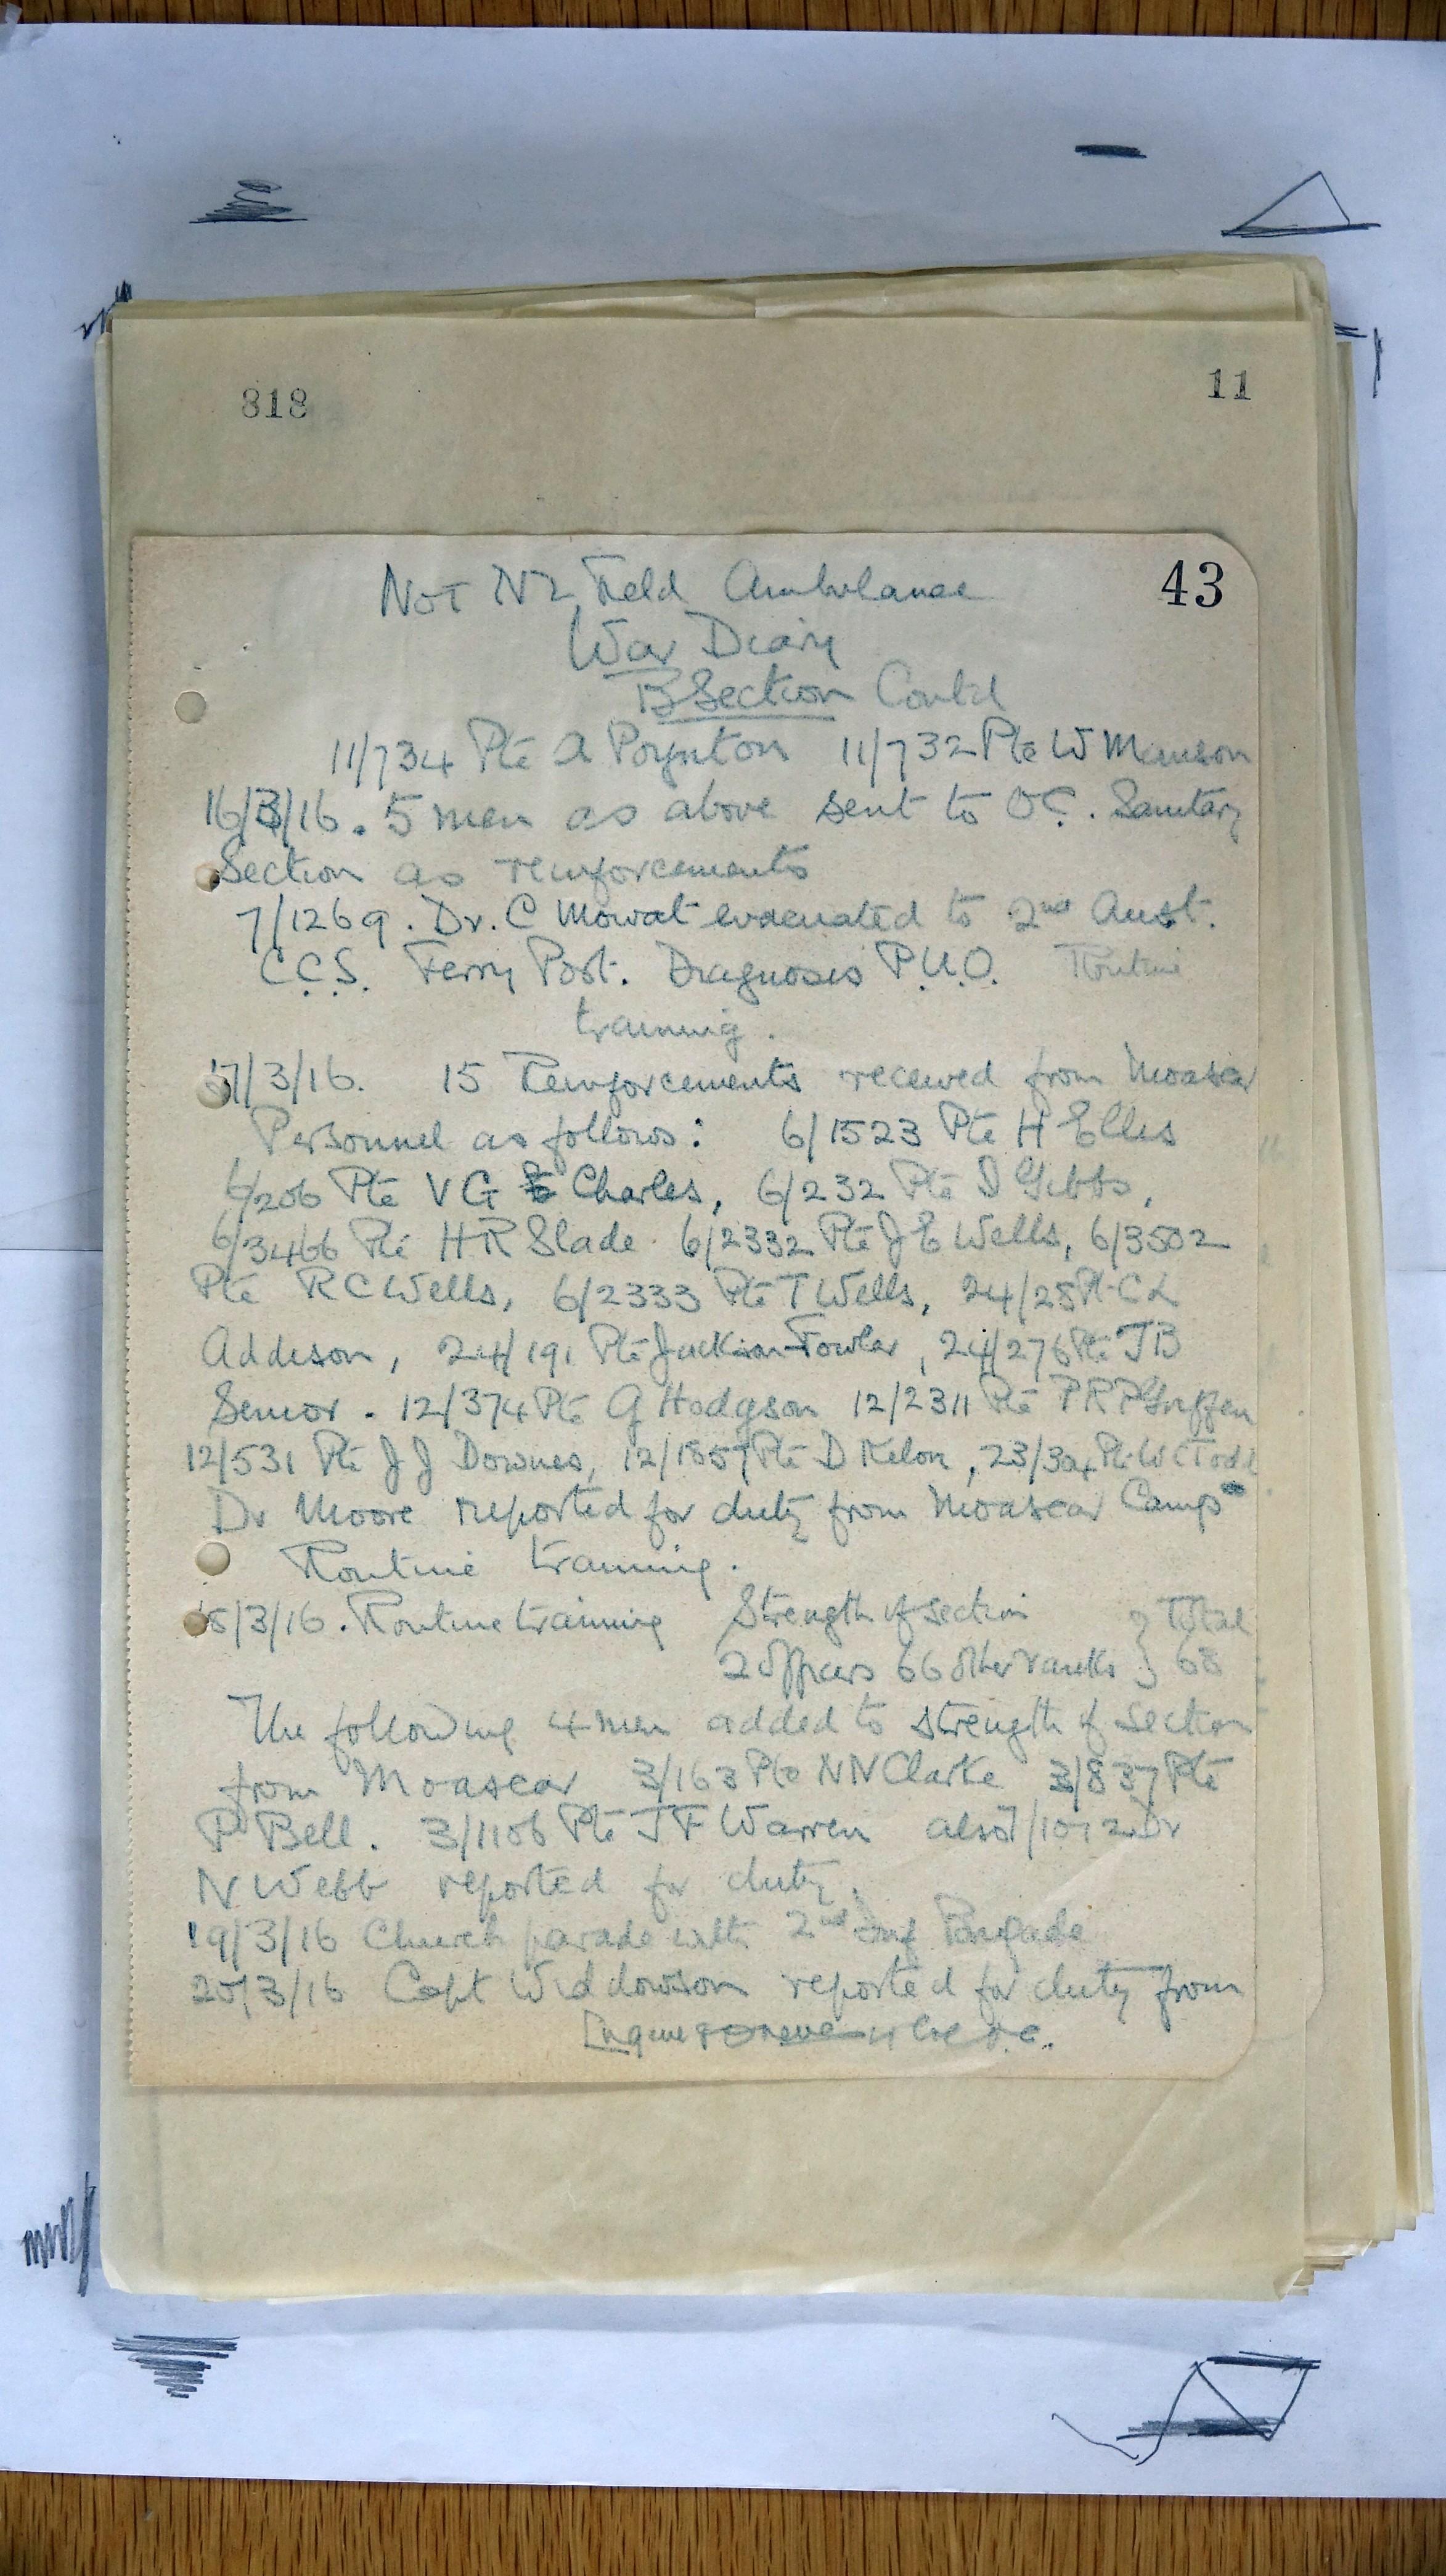 818
11
43
No 1 NZ Field Ambulance
War Diary
B Section Contd
11/734 Pte A Poynton 11/732 Pte W Manson
16/3/16. 5 men as above sent to O.C. Sanitary
Section as reinforcements
7/1269. Dr. C Mowat evacuated to 2nd Aust.
C.C.S. Ferry Post. Diagnosis P.U.O. Routine
training.
17/3/16. 15 Reinforcements received from Moascar
Personnel as follows: 6/1523 Pte H Elles
6/206 Pte V G Charles, 6/232 Pte D Gibbs,
6/3466 Pte H R Slade. 6/2332 Pte J E Wells, 6/3502
Pte R C Wells, 6/2333 Pte T Wells, 24/28 Pte C L
Addison, 24/191 Pte Jackson Fowler, 24/276 Pte J B
Senior. 12/374 Pte G Hodgson 12/2311 Pte P R P
12/531 Pte J J Downes, 12/1857 Pte D Kelon, 23/304 Pte W C Todd
Dr Moore reported for duty from Moascar Camp
Routine training.
18/3/16. Routine training Strength of section } Total
2 Officers 66 other ranks } 68
The following 4 men added to strength of section
from Moascar 3/163 Pte N N Clarke 3/837 Pte
P Bell. 3/1106 Pte J F Warren also 7/1012 Dr
N Webb reported for duty.
19/3/16 Church parade with 2nd Inf Brigade
20/3/16 Capt Widdowson reported for duty from